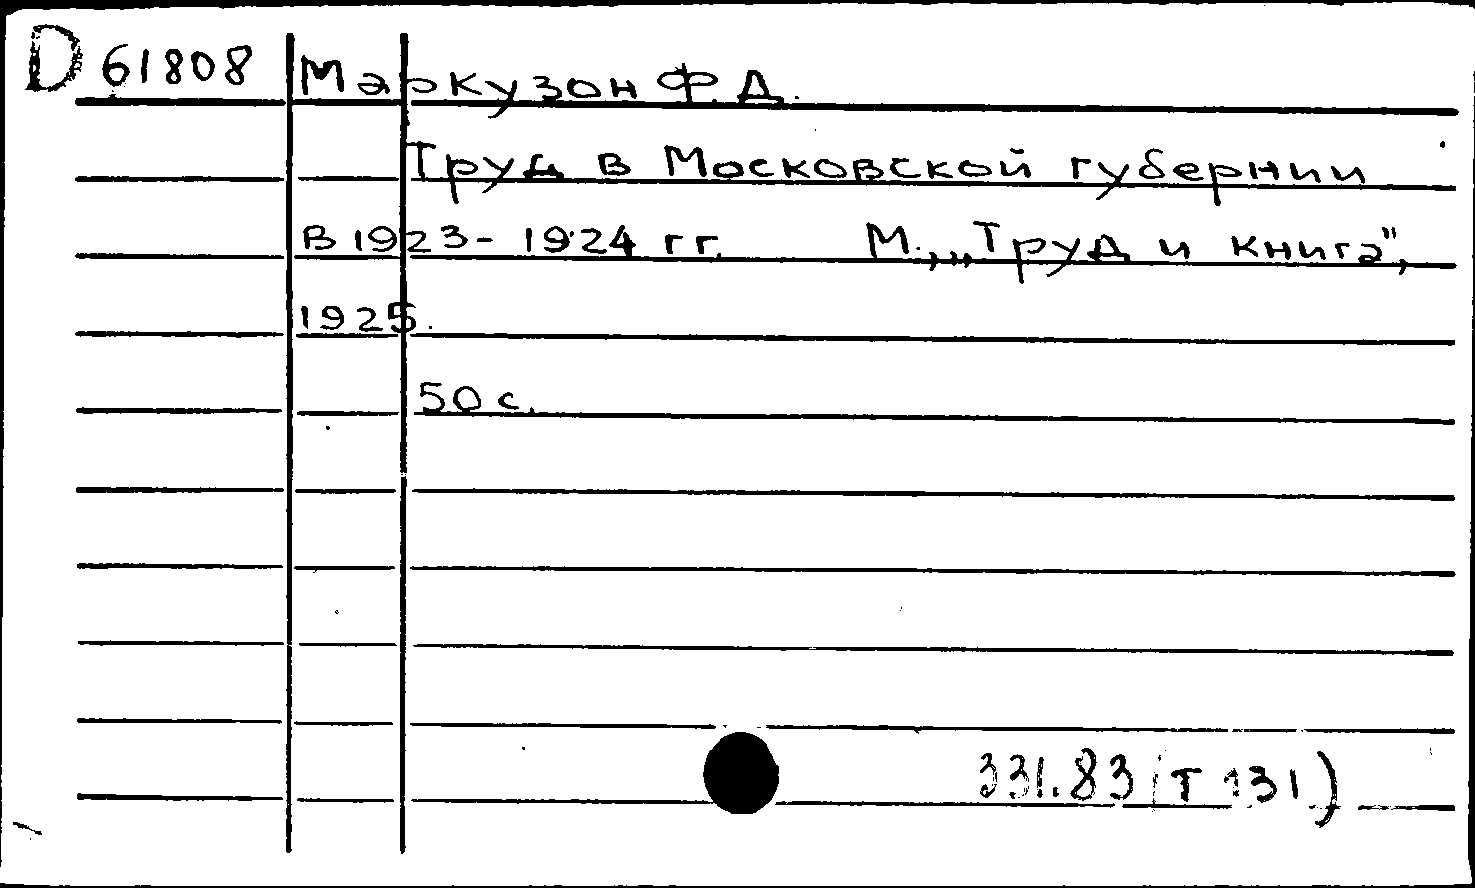 D 61808 Маркузон Ф.Д.
Труд в Московской губернии
в 1923-1924 гг. М., „Труд и книга",
1925.
50 с.
331.83 (Т 131)